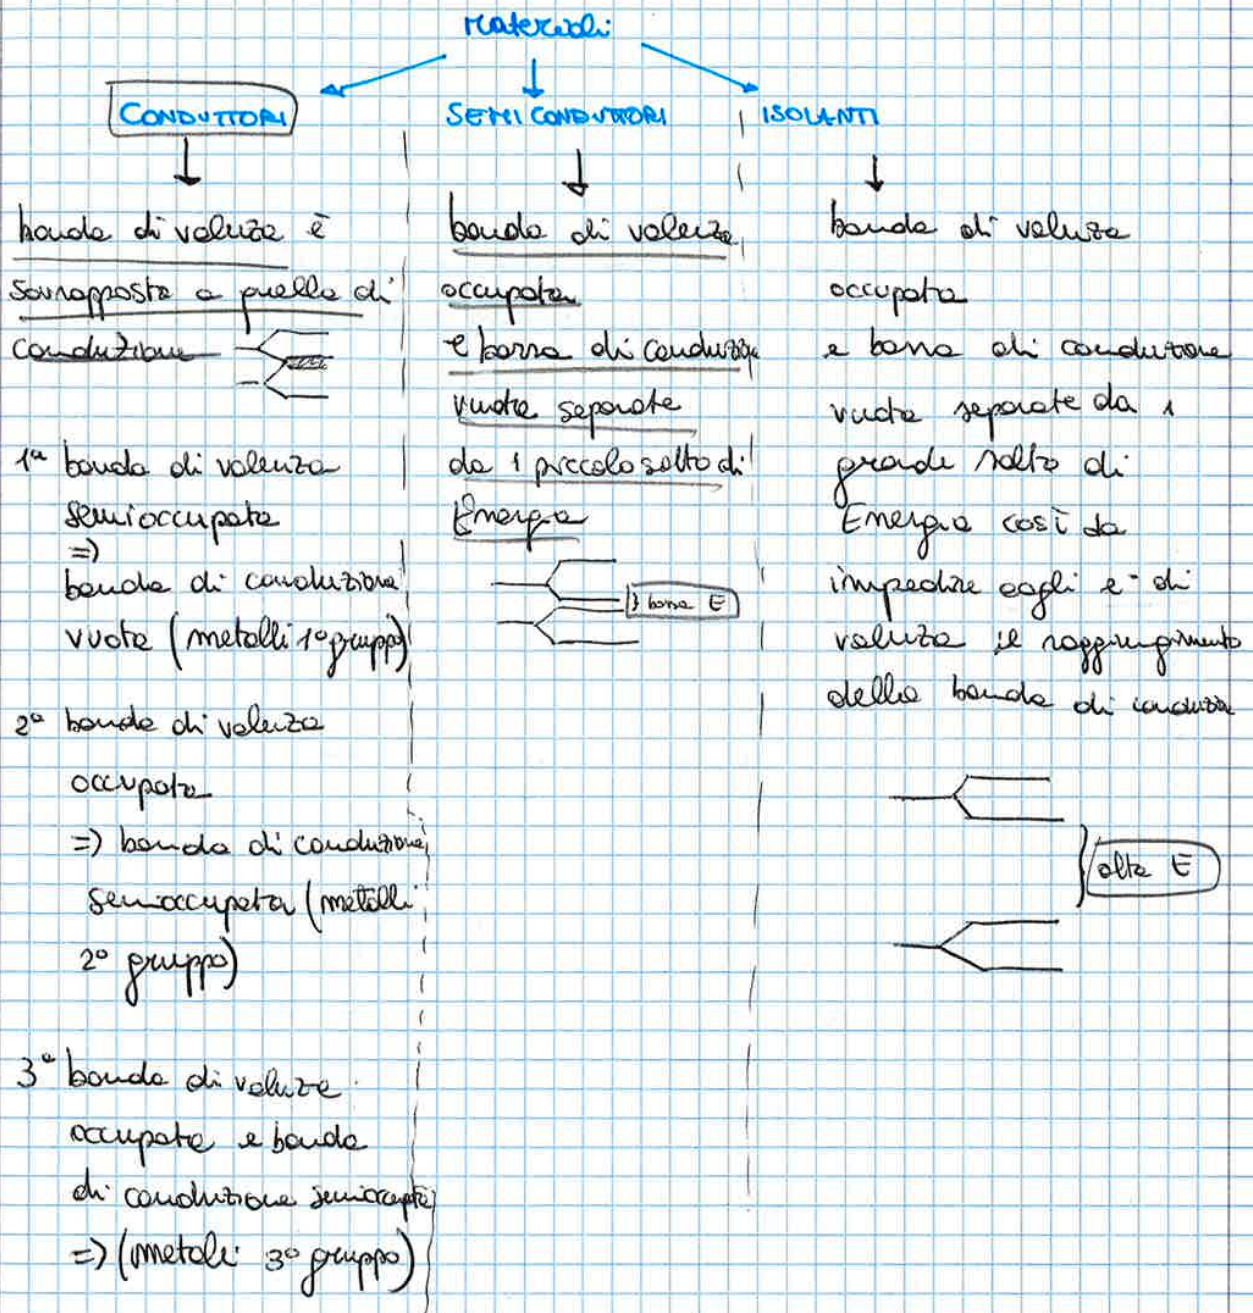 Materiali
CONDUTTORI
SEMICONDUTTORI
ISOLANTI
banda di valenza è
sovrapposta a quella di
conduzione
1ª banda di valenza
semioccupata
=>
banda di conduzione
vuota (metalli 1º gruppo)
2ª banda di valenza
occupata
=> banda di conduzione
semioccupata (metalli
2º gruppo)
3ª banda di valenza
occupata e banda
di conduzione semioccupata
=> (metalli 3º gruppo)
banda di valenza
occupata
e banda di conduzione
vuota separate
da 1 piccolo salto di
Energia
} bassa E
banda di valenza
occupata
e banda di conduzione
vuota separate da 1
grande salto di
Energia così da
impedire agli e⁻ di
valenza il raggiungimento
della banda di conduzione
alta E